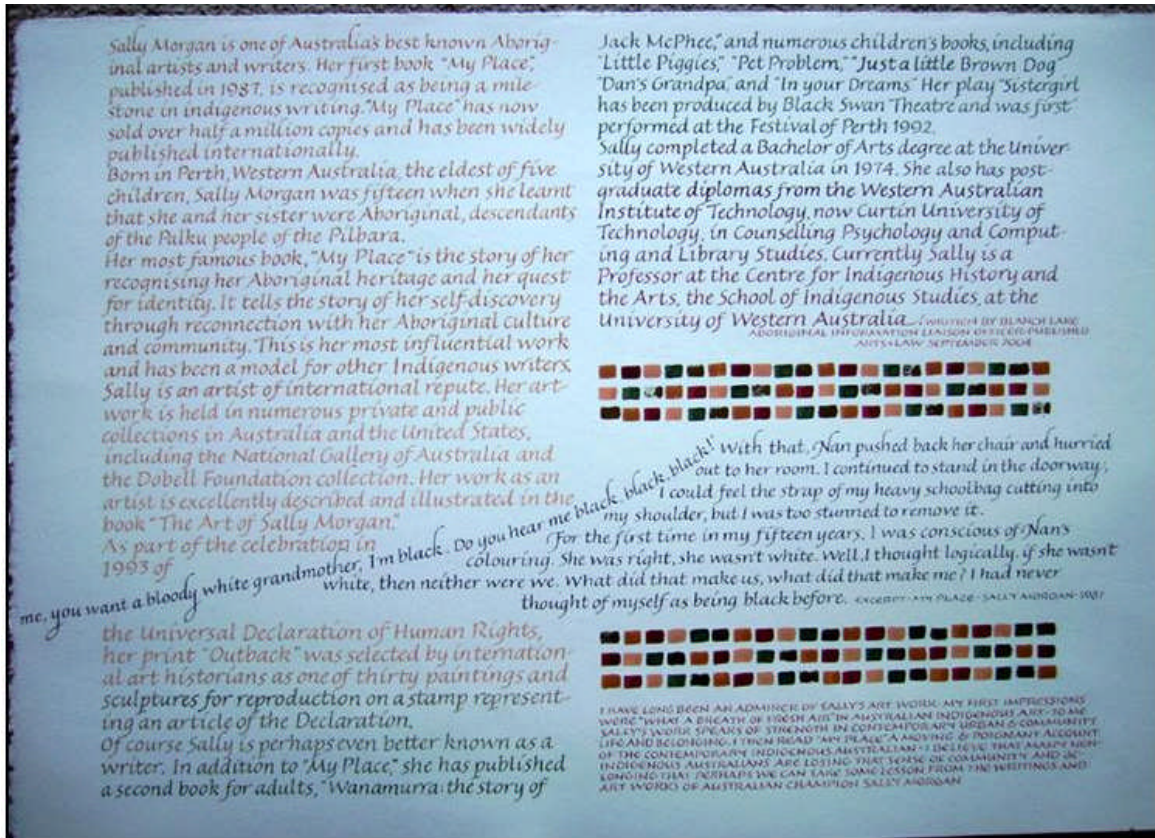 Sally Morgan is one of Australia's best known Aborig-
inal artists and writers. Her first book "My Place",
published in 1987, is recognised as being a mile-
stone in indigenous writing. "My Place" has now
sold over half a million copies and has been widely
published internationally.
Born in Perth, Western Australia, the eldest of five
children, Sally Morgan was fifteen when she learnt
that she and her sister were Aboriginal, descendants
of the Palku people of the Pilbara.
Her most famous book, "My Place" is the story of her
recognising her Aboriginal heritage and her quest
for identity. It tells the story of her self-discovery
through reconnection with her Aboriginal culture
and community. This is her most influential work
and has been a model for other Indigenous writers.
Sally is an artist of international repute. Her art-
work is held in numerous private and public
collections in Australia and the United States,
including the National Gallery of Australia and
the Dobell Foundation collection. Her work as an
artist is excellently described and illustrated in the
book "The Art of Sally Morgan."
As part of the celebration in
1993 of
the Universal Declaration of Human Rights,
her print "Outback" was selected by internation-
al art historians as one of thirty paintings and
sculptures for reproduction on a stamp represent-
ing an article of the Declaration.
Of course Sally is perhaps even better known as a
writer. In addition to "My Place," she has published
a second book for adults, "Wanamurra: the story of
Jack McPhee," and numerous children's books, including
"Little Piggies," "Pet Problem," "Just a little Brown Dog"
"Dan's Grandpa", and "In your Dreams" Her play "Sistergirl
has been produced by Black Swan Theatre and was first
performed at the Festival of Perth 1992.
Sally completed a Bachelor of Arts degree at the Univer-
sity of Western Australia in 1974. She also has post-
graduate diplomas from the Western Australian
Institute of Technology, now Curtin University of
Technology, in Counselling Psychology and Comput-
ing and Library Studies. Currently Sally is a
Professor at the Centre for Indigenous History and
the Arts, the School of Indigenous Studies, at the
University of Western Australia. WRITTEN BY BLANCH LAKE
ABORIGINAL INFORMATION LIAISON OFFICER PUBLISHED
ARTS+LAW SEPTEMBER 2004
me, you want a bloody white grandmother, I'm black. Do you hear me black, black, black!'
With that, Nan pushed back her chair and hurried
out to her room. I continued to stand in the doorway,
I could feel the strap of my heavy schoolbag cutting into
my shoulder, but I was too stunned to remove it.
For the first time in my fifteen years, I was conscious of Nan's
colouring. She was right, she wasn't white. Well, I thought logically, if she wasn't
white, then neither were we. What did that make us, what did that make me? I had never
thought of myself as being black before. EXCERPT·MY PLACE·SALLY MORGAN·1987
I HAVE LONG BEEN AN ADMIRER OF SALLY'S ART WORK. MY FIRST IMPRESSIONS
WERE "WHAT A BREATH OF FRESH AIR" IN AUSTRALIAN INDIGENOUS ART-TO ME
SALLY'S WORK SPEAKS OF STRENGTH IN CONTEMPORARY URBAN & COMMUNITY
LIFE AND BELONGING. I THEN READ 'MY PLACE' A MOVING & POIGNANT ACCOUNT
OF THE CONTEMPORARY INDIGENOUS AUSTRALIAN-I BELIEVE THAT MANY NON-
INDIGENOUS AUSTRALIANS ARE LOSING THAT SENSE OF COMMUNITY AND BE-
LONGING THAT PERHAPS WE CAN TAKE SOME LESSON FROM THE WRITINGS AND
ART WORKS OF AUSTRALIAN CHAMPION SALLY MORGAN